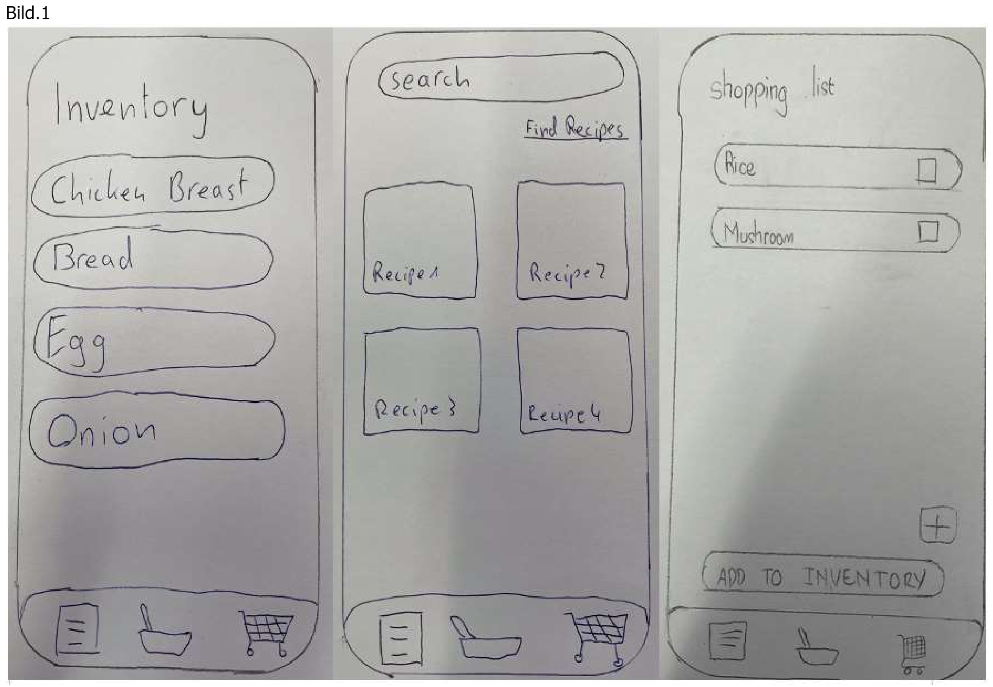 Bild.1
Inventory
Chicken Breast
Bread
Egg
Onion
search
Find Recipes
Recipe 1
Recipe 2
Recipe 3
Recipe 4
shopping list
Rice
Mushroom
ADD TO INVENTORY